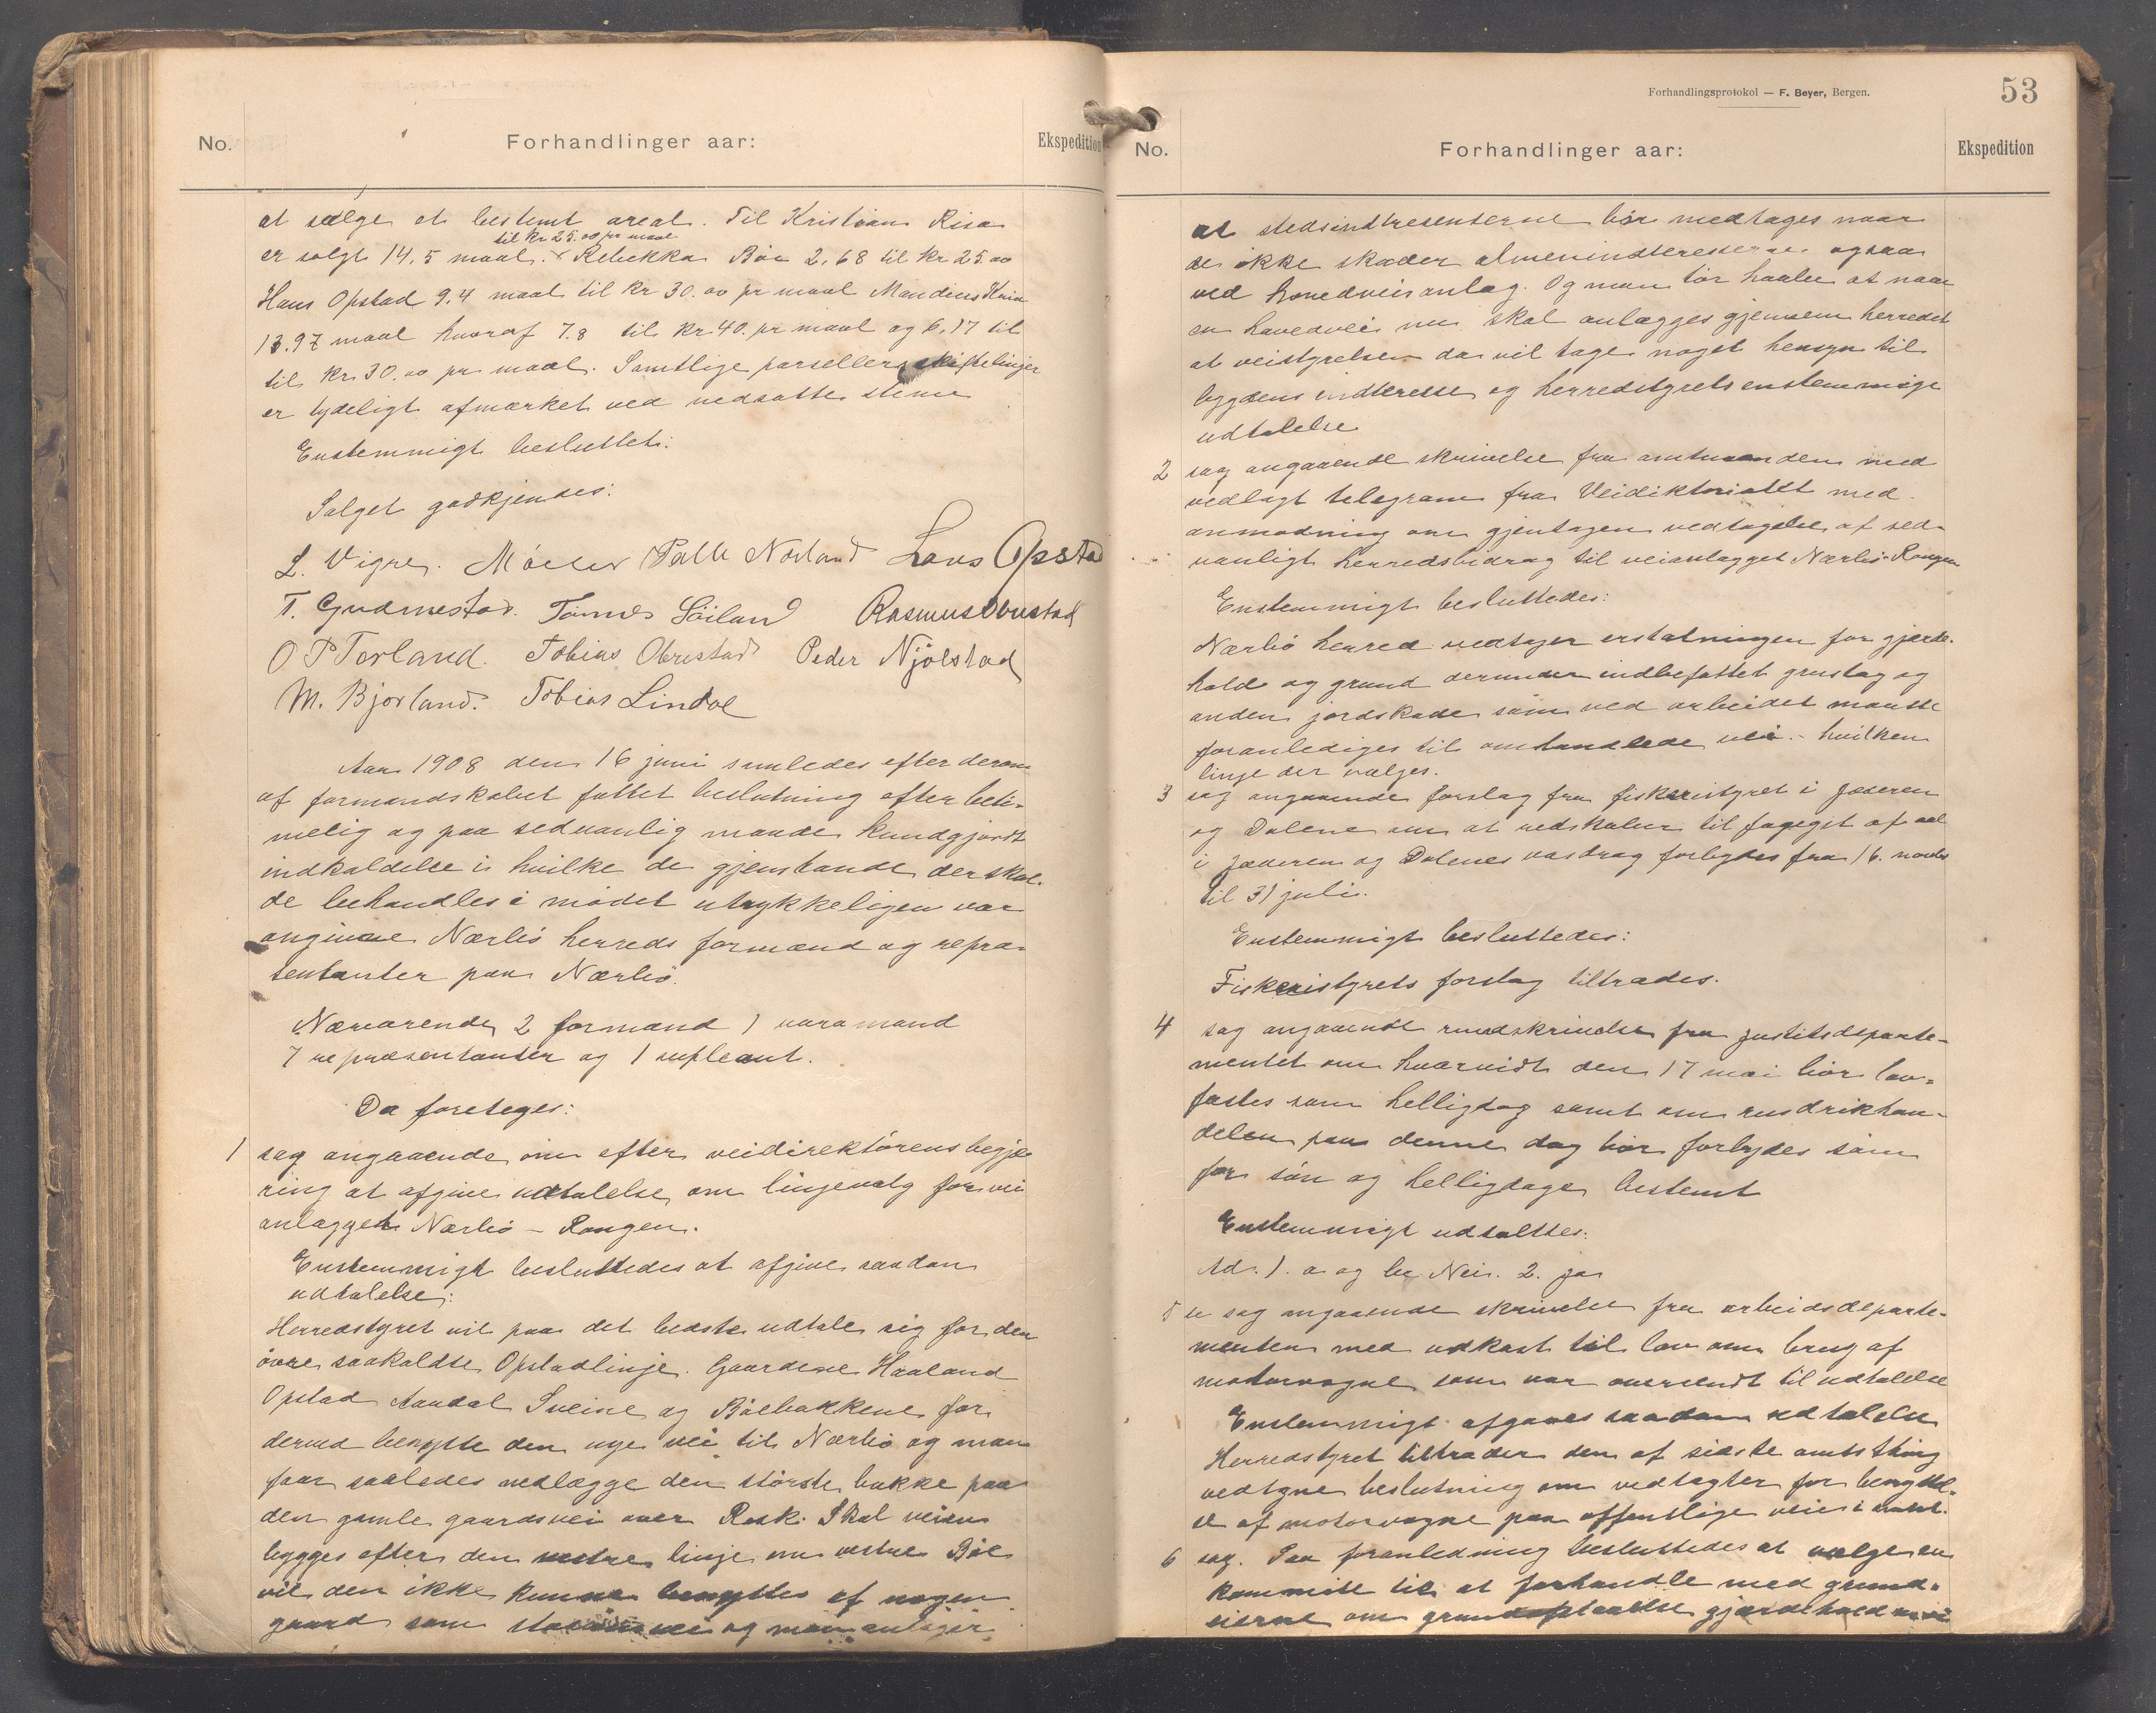 No.
Forhandlinger aar:
Ekspedition
at sælge et bestemt areal. Til Kristian Risa
til Kr 25.00 pr maal
er solgt 14.5 maal. Rebekka Böe 2.68 til kr 25.00
Hans Opstad 9.4 maal til kr 30.00 pr maal
13.97 maal hvoraf 7.8 til kr 40. pr maal og 6.17 til
til kr 30.00 pr maal. Samtlige parseller skiftelinjer
er tydeligt afmærket ved nedsatte stene
Enstemmigt besluttet:
Salget godkjendes:
L. Vigre. Möller Palle Norland Lars Opstad
T. Gudmestad. Tönnes Söiland Rasmus Obrestad
O P Torland. Tobias Obrestad Peder Njölstad
M. Bjorland. Tobias Lindal
Aar 1908 den 16 juni samledes efter derom
af formandskabet fattet beslutning efter beti-
melig og paa sedvanlig maade kundgjordt
indkaldelse i hvilke de gjenstande der skul-
de behandles i mödet utrykkeligen var
angivne Nærbö herreds formænd og repræ-
sentanter paa Nærbö.
Nærværende 2 formænd 1 varamand
7 repræsentanter og 1 supleant.
Da foretoges:
1 sag angaaende om efter veidirektörens begjæ
ring at afgive udtalelse om linjevalg for vei
anlægget Nærbö - Rongen.
Enstemmigt besluttedes at afgive saadan
udtalelse:
Herredstyret vil paa det bedste udtale sig for den
övre saakaldte Opstadlinje. Gaardene Haaland
Opstad Aandal Sveine og Böebakkene faar
derved benytte den nye vei til Nærbö og man
faar saaledes nedlægge den störste bakke paa
den gamle gaardsvei over Rosk. Skal veien
bygges efter den vestre linje om vestre Böe
vil den ikke kunne benyttes af nogen
gaard som vei og man
Forhandlingsprotokol — F. Beyer, Bergen.
53
No.
Forhandlinger aar:
Ekspedition
at stedsindtresenterne bör medtages naar
de ikke skader almenindteresserne ogsaa
ved hovedveisanlæg. Og man tör haabe at naar
en hovedvei nu skal anlægges gjennem herredet
at veistyrelsen da vil tage noget hensyn til
bygdens indteresse og herredstyrets enstemmige
udtalelse
2 sag angaaende skrivelse fra amtmanden med
vedlagt telegram fra Veidiktoriatet med
anmodning om gjentagen vedtagelse af sed-
vanligt herredsbidrag til veianlægget Nærbö-Rongen
Enstemmigt besluttedes:
Nærbö herred vedtager erstatningen for gjerde-
hold og grund derunder indbefattet grustag og
anden jordskade som ved arbeidet maatte
foranlediges til omhandlede vei - hvilken
linje der vælges.
3 sag angaaende forslag fra fiskeristyret i Jæderen
og Dalene om at redskaber til fangst af aal
i Jæderen og Dalenes vasdrag forbydes fra 16.
til 31 juli.
Enstemmigt besluttedes:
Fiskeristyrets forslag tiltrædes.
4 sag angaaende rundskrivelse fra justitsdeparte-
mentet om hvorvidt den 17 mai bör lov-
fæstes som helligdag samt om rusdrikhan-
delen paa denne dag bör forbydes som
for sön og helligdage bestemt
Enstemmigt udtaltes:
Ad. 1. a og be Nei. 2. ja
5 sag angaaende skrivelse fra arbeidsdeparte-
menten med udkast til lov om brug af
motorvogne som var oversendt til udtalelse
Enstemmigt afgaves saadan udtalelse
Herredstyret tiltræder den af sidste amtsthing
vedtagne beslutning om vedtægter for benyttel-
se af motorvogne paa offentlige veie i amtet.
6 sag. Paa foranledning besluttedes at vælge en
kommite til at forhandle med grund-
eierne om gjærdehold